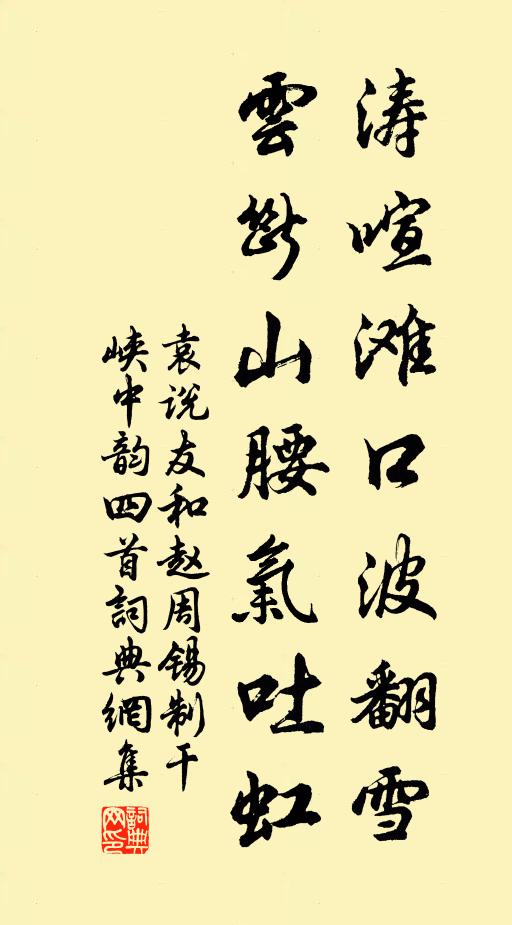 涛喧滩口波翻雪
雲断山腰氣吐虹
袁说友和赵周锡制干
峡中韵四首詞典網集
詞典
网印